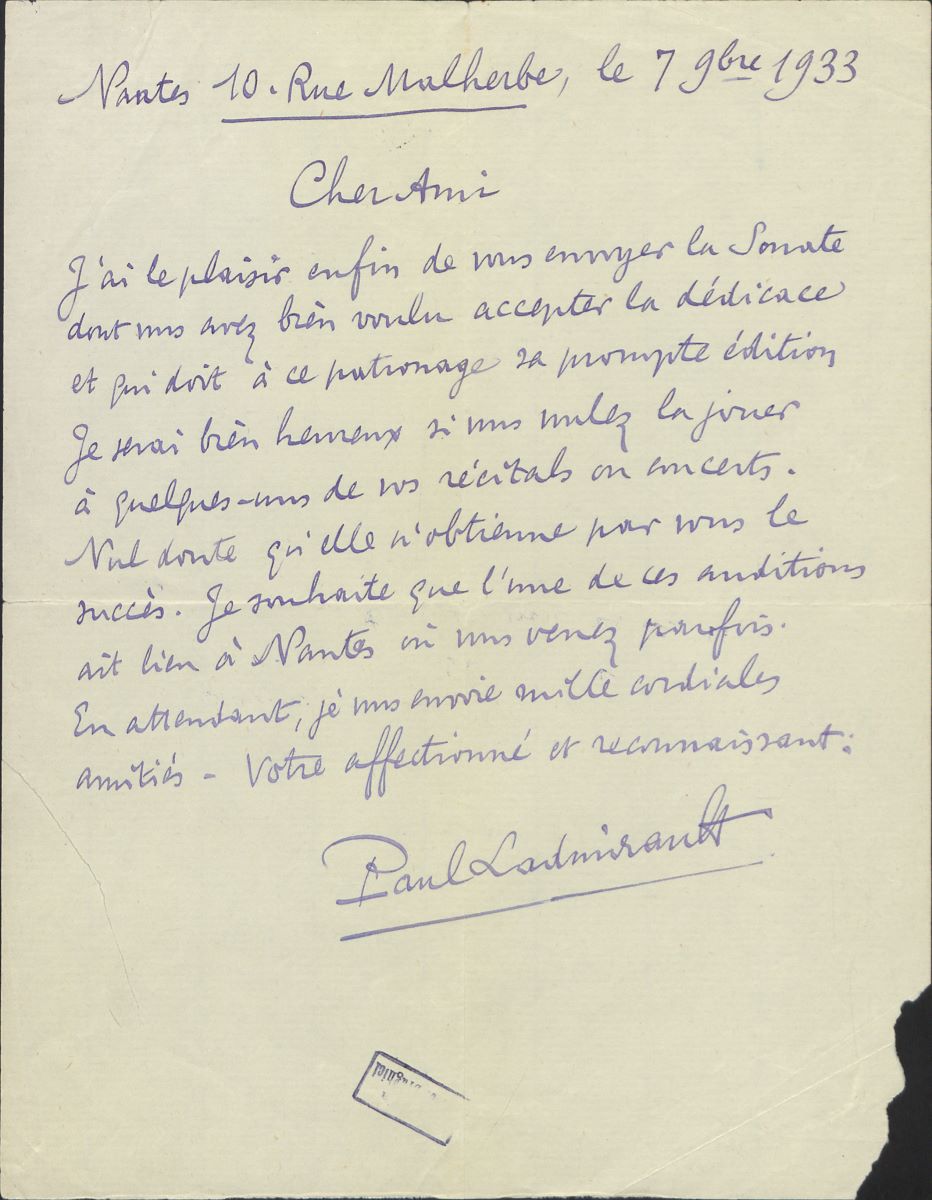 Nantes 10. Rue Malherbe, le 7 9bre 1933
Cher Ami
J'ai le plaisir enfin de vous envoyer la Sonate
dont vous avez bien voulu accepter la dédicace
et qui doit à ce patronage sa prompte édition
Je serai bien heureux si vous voulez la jouer
à quelques-uns de vos récitals ou concerts.
Nul doute qu'elle n'obtienne par vous le
succès. Je souhaite que l'une de ces auditions
ait lieu à Nantes où vous venez parfois.
En attendant, je vous envoie mille cordiales
amitiés - Votre affectionné et reconnaissant:
Paul Ladmirault